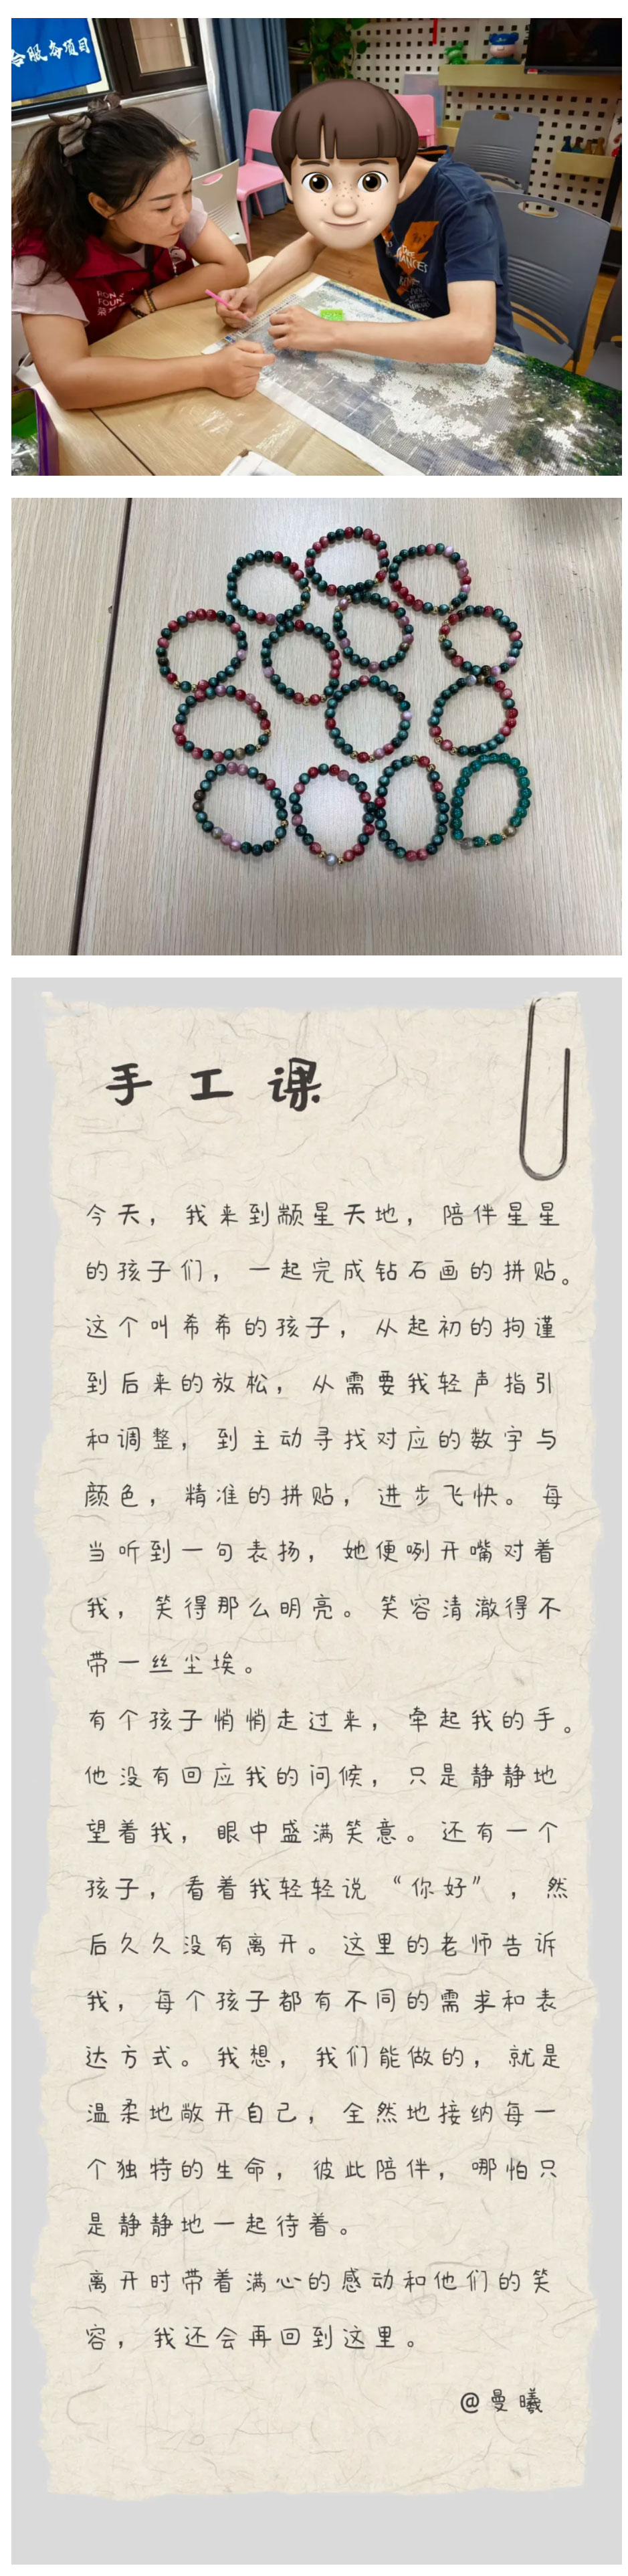 合服务项目
手工课
今天，我来到颛星天地，陪伴星星
的孩子们，一起完成钻石画的拼贴。
这个叫希希的孩子，从起初的拘谨
到后来的放松，从需要我轻声指引
和调整，到主动寻找对应的数字与
颜色，精准的拼贴，进步飞快。每
当听到一句表扬，她便咧开嘴对着
我，笑得那么明亮。笑容清澈得不
带一丝尘埃。
有个孩子悄悄走过来，牵起我的手。
他没有回应我的问候，只是静静地
望着我，眼中盛满笑意。还有一个
孩子，看着我轻轻说“你好”，然
后久久没有离开。这里的老师告诉
我，每个孩子都有不同的需求和表
达方式。我想，我们能做的，就是
温柔地敞开自己，全然地接纳每一
个独特的生命，彼此陪伴，哪怕只
是静静地一起待着。
离开时带着满心的感动和他们的笑
容，我还会再回到这里。
@曼曦